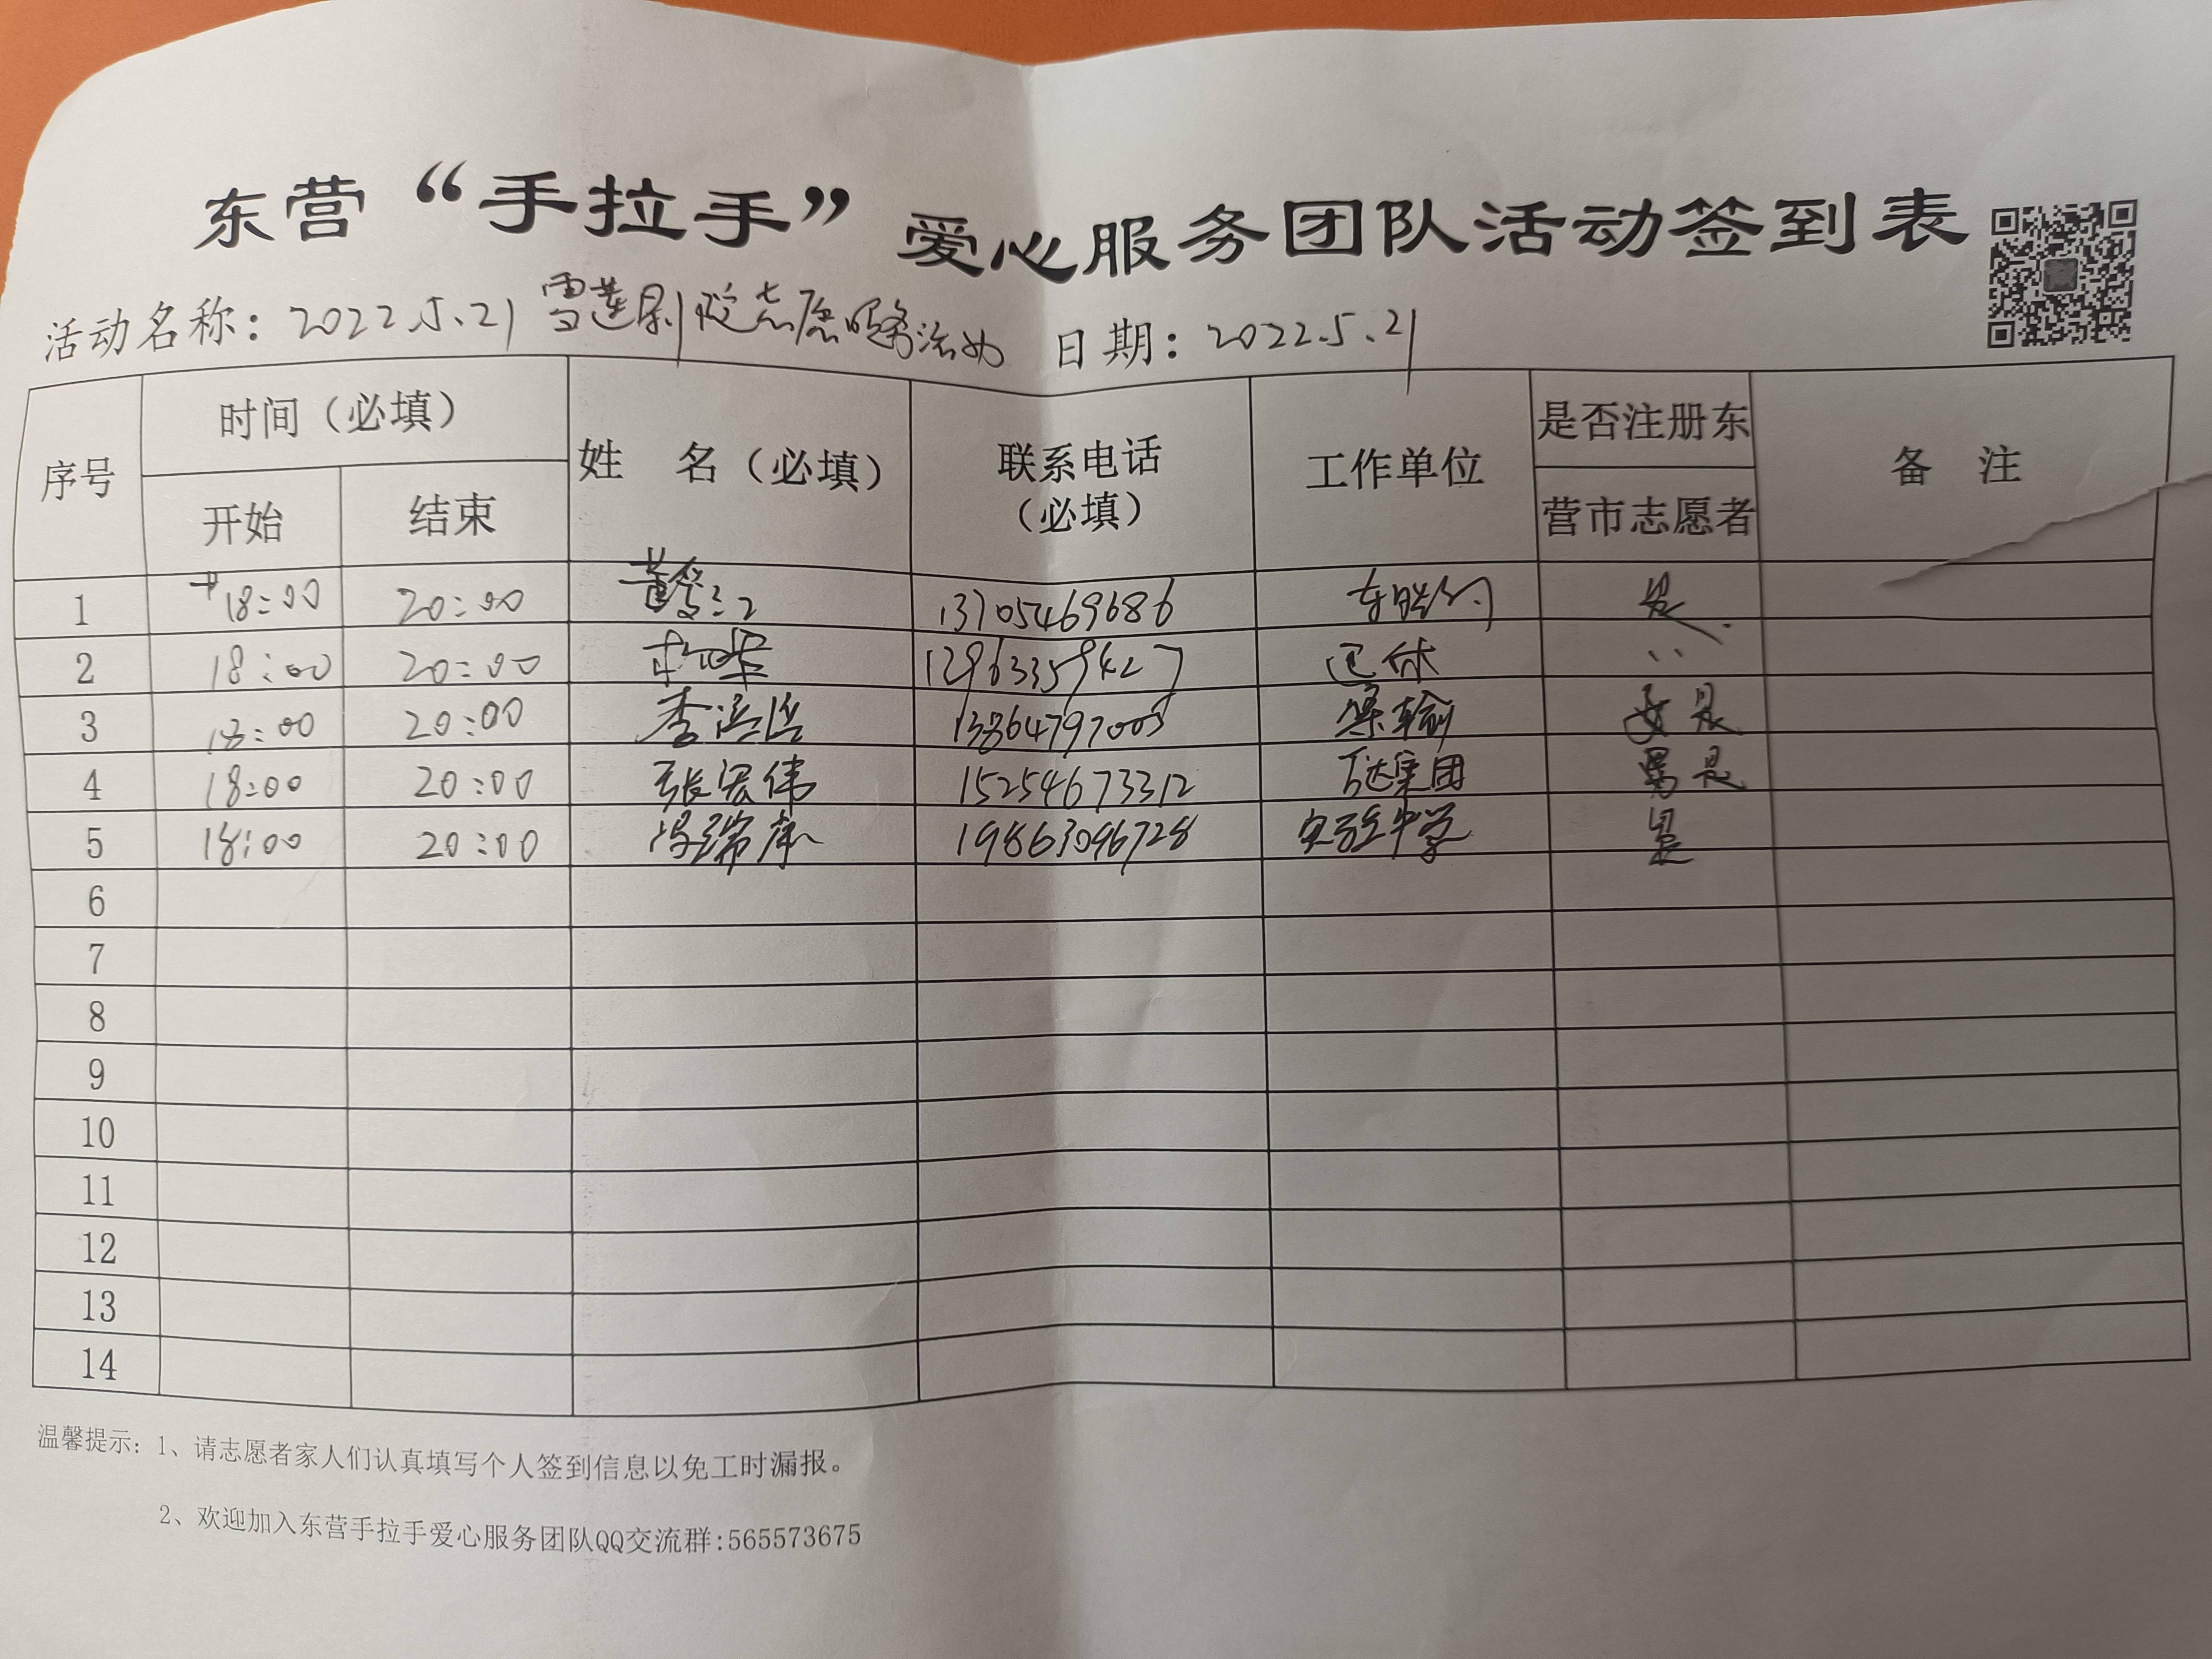 东营“手拉手”爱心服务团队活动签到表
活动名称：2022.5.21雪莲剧院志愿服务活动 日期：2022.5.21
序号 时间（必填） 姓 名（必填） 联系电话（必填） 工作单位 是否注册东营市志愿者 备 注
开始 结束
1 18:00 20:00 董 13705469686 是
2 18:00 20:00 退休 〃
3 18:00 20:00 李 13864797003 是
4 18:00 20:00 张宏伟 15254673312 万达集团 男 是
5 18:00 20:00 冯瑞康 19863096728 实验中学 是
6
7
8
9
10
11
12
13
14
温馨提示：1、请志愿者家人们认真填写个人签到信息以免工时漏报。
2、欢迎加入东营手拉手爱心服务团队QQ交流群:565573675